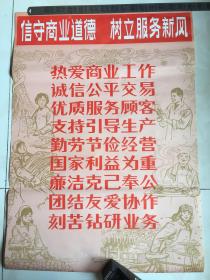 信守商业道德 树立服务新风
热爱商业工作
诚信公平交易
优质服务顾客
支持引导生产
勤劳节俭经营
国家利益为重
廉洁克己奉公
团结友爱协作
刻苦钻研业务